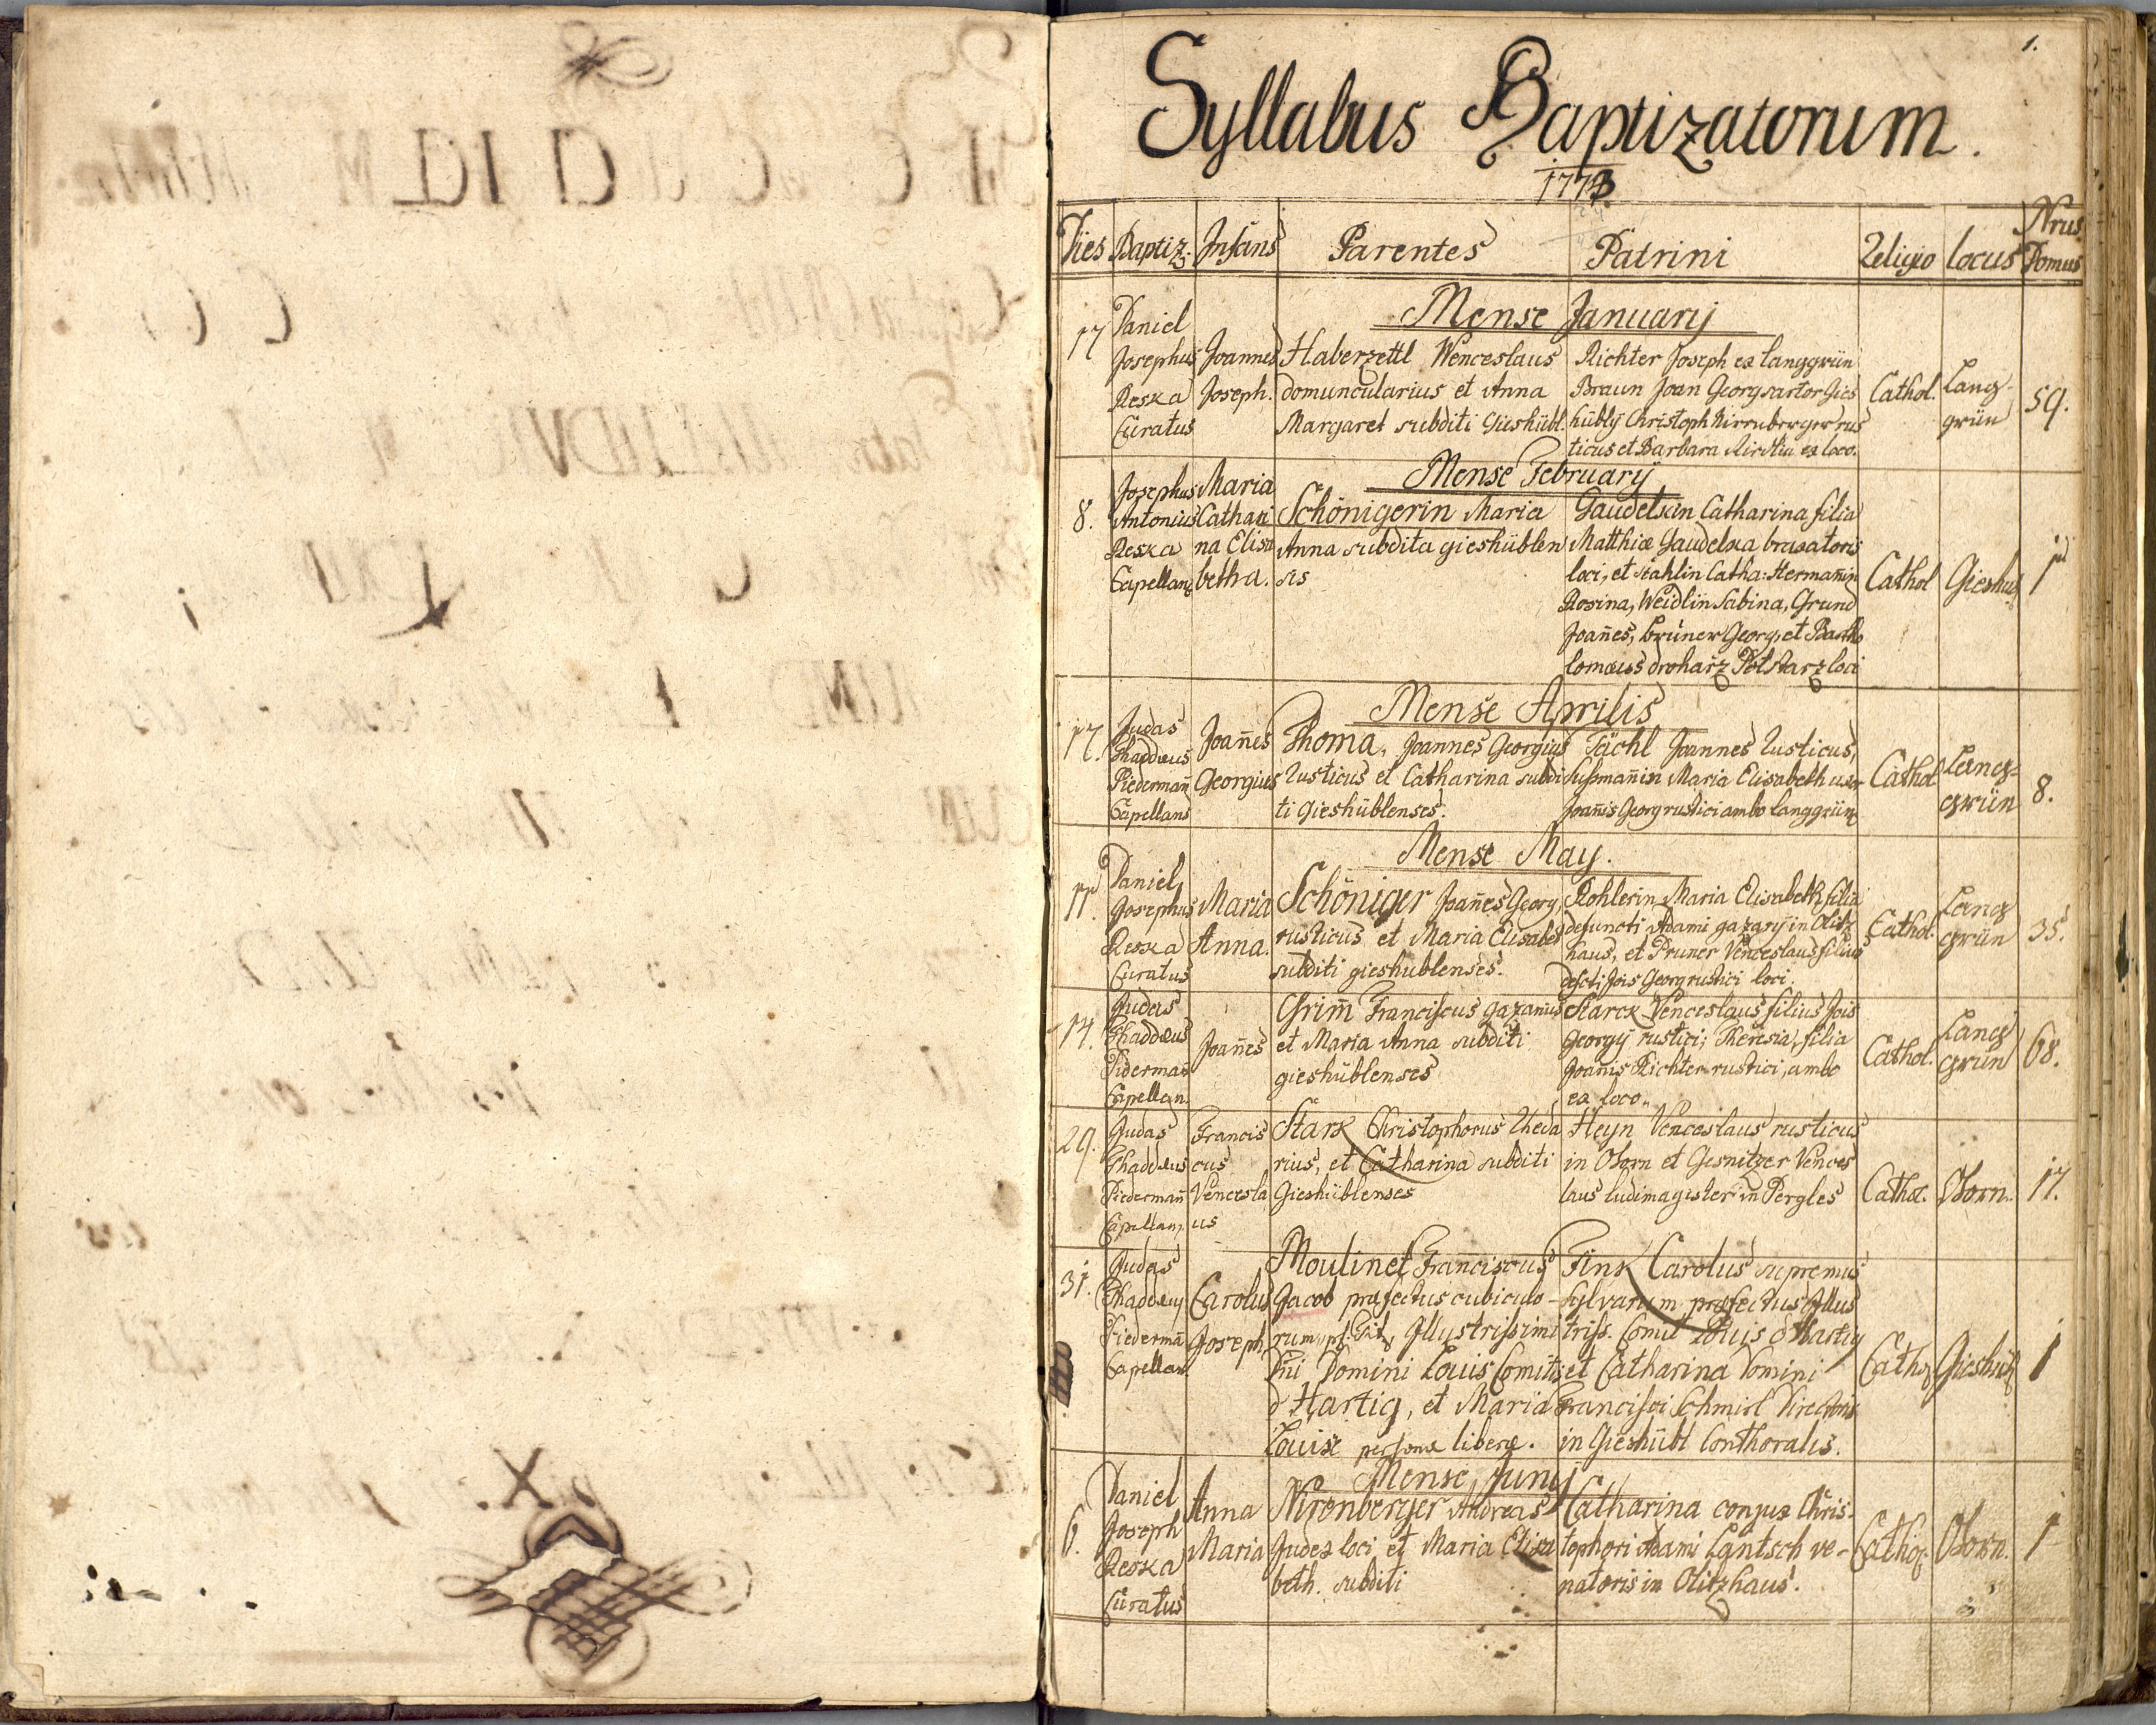 1.
Syllabus Baptizatorum.
1773
Dies Baptiz: Infans Parentes Patrini Religio locus Nrus Domus
Mense Januarij
17 Daniel
Josephus
Reska
Curatus
Joannes
Joseph.
Haberzettl Wenceslaus
domuncularius et Anna
Margaret subditi Gieshübl.
Richter Joseph ex langgrün
Braun Joan Georg sartor Gies
hüblÿ Christoph Nirnberger rus
ticus et Barbara ex loco.
Cathol.
Lang-
grün
59.
Mense Februarij
8.
Josephus
Antonius
Reska
Capellang
Maria
Cathari
na Elisa
betha.
Schönigerin Maria
Anna subdita gieshüblen
sis
Gaudelkin Catharina filia
Matthiæ Gaudelka braxatoris
loci, et Stahlin Catha: Hermañin
Rosina, Weidlin Sabina, Grund
Joañes, Brüner Georg, et Bartho
lomæus loci
Cathol
Gieshüb
1
Mense Aprilis
17.
Judas
Thaddæus
Piedermañ
Capellans
Joañes
Georgius
Thoma, Joannes Georgius
Rusticus et Catharina subdi
ti Gieshüblenses.
Tächl Joannes Rusticus,
Sußmañin Maria Elisabeth uxor
Joañis Georg rustici ambo langgrün
Cathol
Lang=
grün
8.
Mense May.
11.
Daniel
Josephus
Reska
Curatus
Maria
Anna.
Schöniger Joañes Georg,
rusticus et Maria Elisabet
subditi gieshublenses.
Kohlerin Maria Elisabeth filia
defuncti Adami gazarij in Olitz
haus, et Pruner Venceslaus filius
defcti Jois Georg rustici loci.
Cathol.
Lang
grün
35.
14.
Judas
Thaddæus
Pidermañ
Capellan.
Joañes
Grim̄ Franciscus gazarius
et Maria Anna subditi
gieshüblenses
Starck Venceslaus filius Jois
Georgÿ rustici; Theresia filia
Joañis Richter rustici, ambo
ex loco.
Cathol.
Lang
grün
68.
29.
Judas
Thaddæus
Piedermañ
Capellan.
Francis
cus
Vencesla
us
Stark Christophorus Rheda
rius, et Catharina subditi
Gieshüblenses
Heyn Venceslaus rusticus
in Ohorn et Gesnitzer Vences
laus ludimagister in Pergles
Cathol.
Ohorn.
17.
31.
Judas
Thaddæus
Piedermã
Capellan
Carolus
Joseph
Moulinet Franciscus
Jacob præfectus cubiculo-
rum Illustrissimi
Dñi Domini Louis Comitis
d'Hartig, et Maria
Louise personæ liberæ.
Fink Carolus supremus
sylvarum præfectus Illus
triss. Comit Louis d'Hartig
et Catharina Domini
Francisci Schmirl Directoris
in Gieshübl Conthoralis.
Cathol
Gieshübl
1
Mense Junij
6.
Daniel
Joseph
Reska
Curatus
Anna
Maria
Nirenberger Andreas
Judex loci et Maria Elisa
beth. subditi
Catharina conjux Chris-
tophori Adami Lantsch ve-
natoris in Olitzhaus.
Cathol
Ohorn.
1